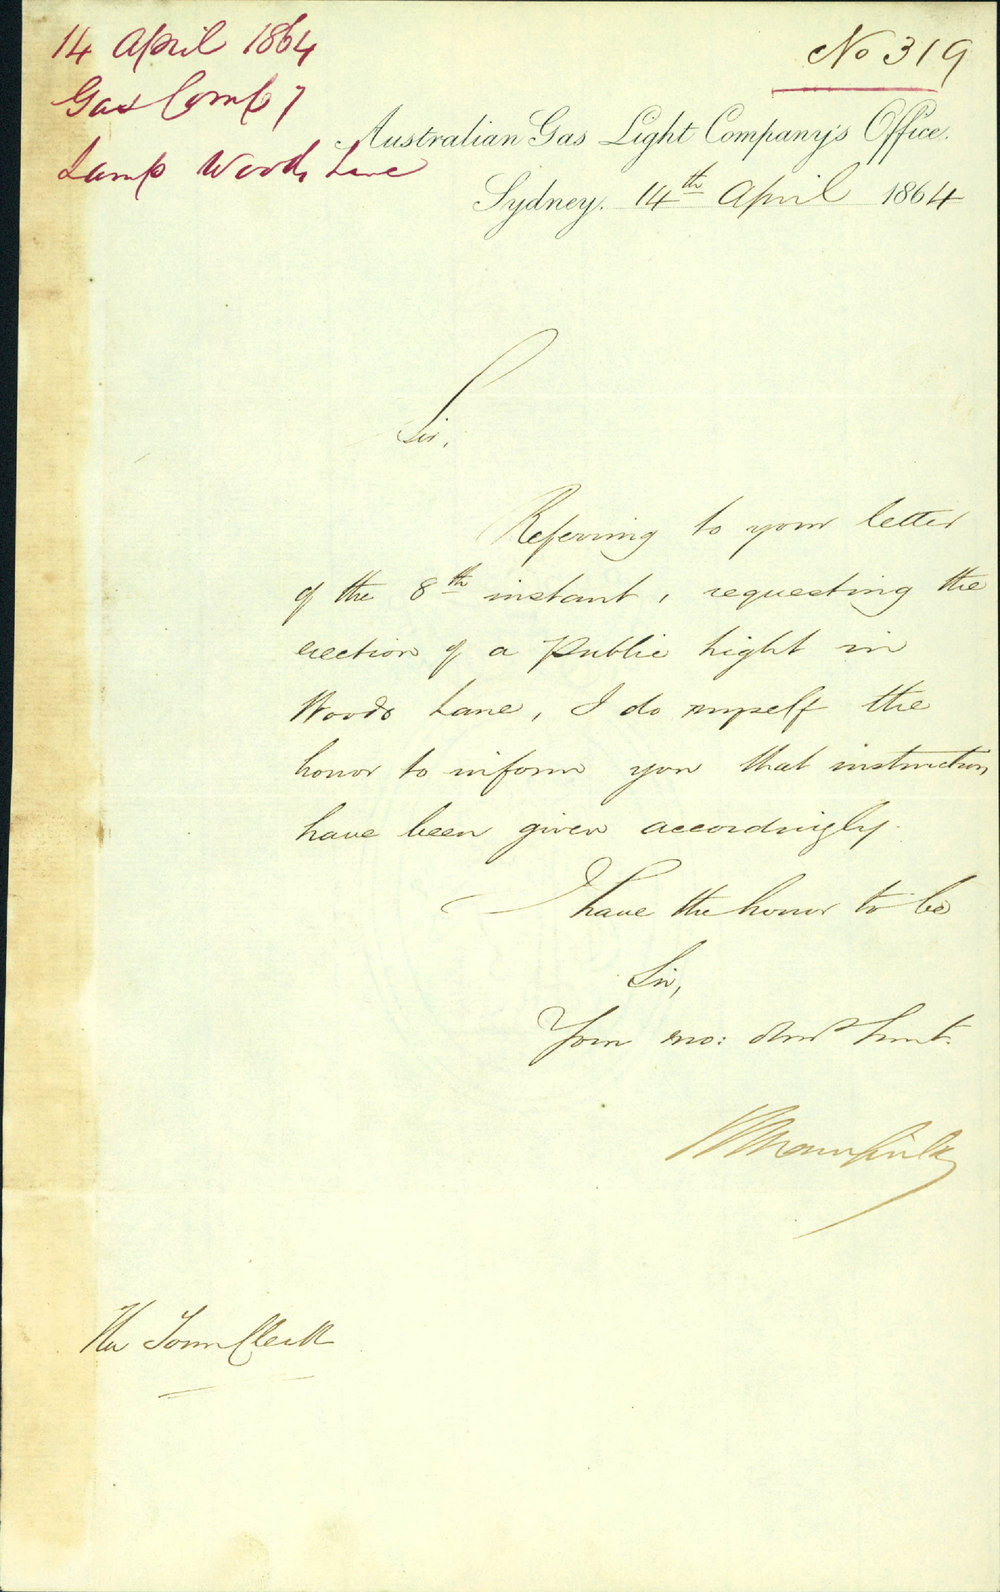 14 April 1864
Gas Comp y
Lamp Woods Lane
No 319
Australian Gas Light Company's Office.
Sydney. 14th April 1864
Sir,
Referring to your letter
of the 8th instant, requesting the
erection of a Public Light in
Woods Lane, I do myself the
honor to inform you that instructions
have been given accordingly.
I have the honor to be
Sir,
Your mo: Obt Servt.
The Town Clerk